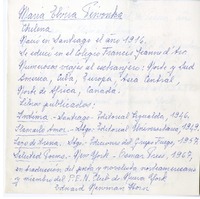 María Elvira Piwonka
Chilena
Nació en Santiago el año 1916.
Se educó en el Colegio Francés Jeanne d'Arc
Numerosos viajes al extranjero: Norte y Sud
América, Cuba, Europa, Asia Central,
Norte de África, Canadá.
Libros publicados:
Íntima - Santiago - Editorial 1946.
Llamarlo Amor - Stgo - Editorial Universitaria, 1949.
Lazo de Arena - Stgo - Ediciones del Grupo Fuego, 1957
Selected Poems - New York - Osmar Press, 1967,
introducción del poeta y novelista norteamericano
y miembro del P.E.N. Club de Nueva York